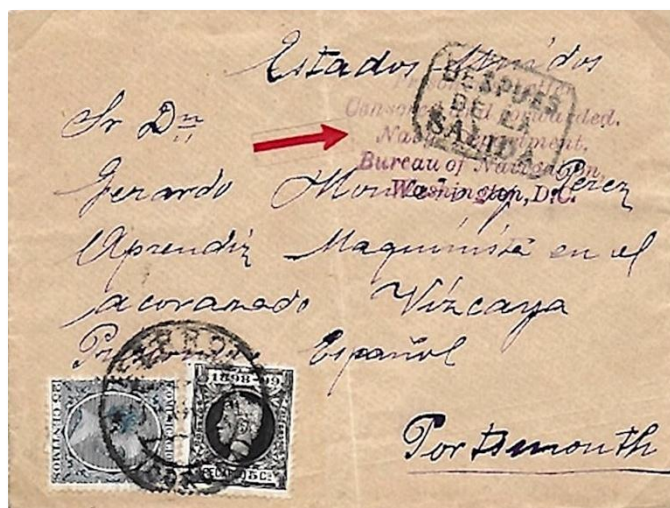 Estados Unidos
DESPUES
DE LA
SALIDA
Censored and forwarded.
Navy Department,
Bureau of Navigation,
Washington, D.C.
Sr Dn
Gerardo Pérez
Aprendiz Maquinista en el
acorazado Vizcaya
Español
Portsmouth
1898-99
5 Cs